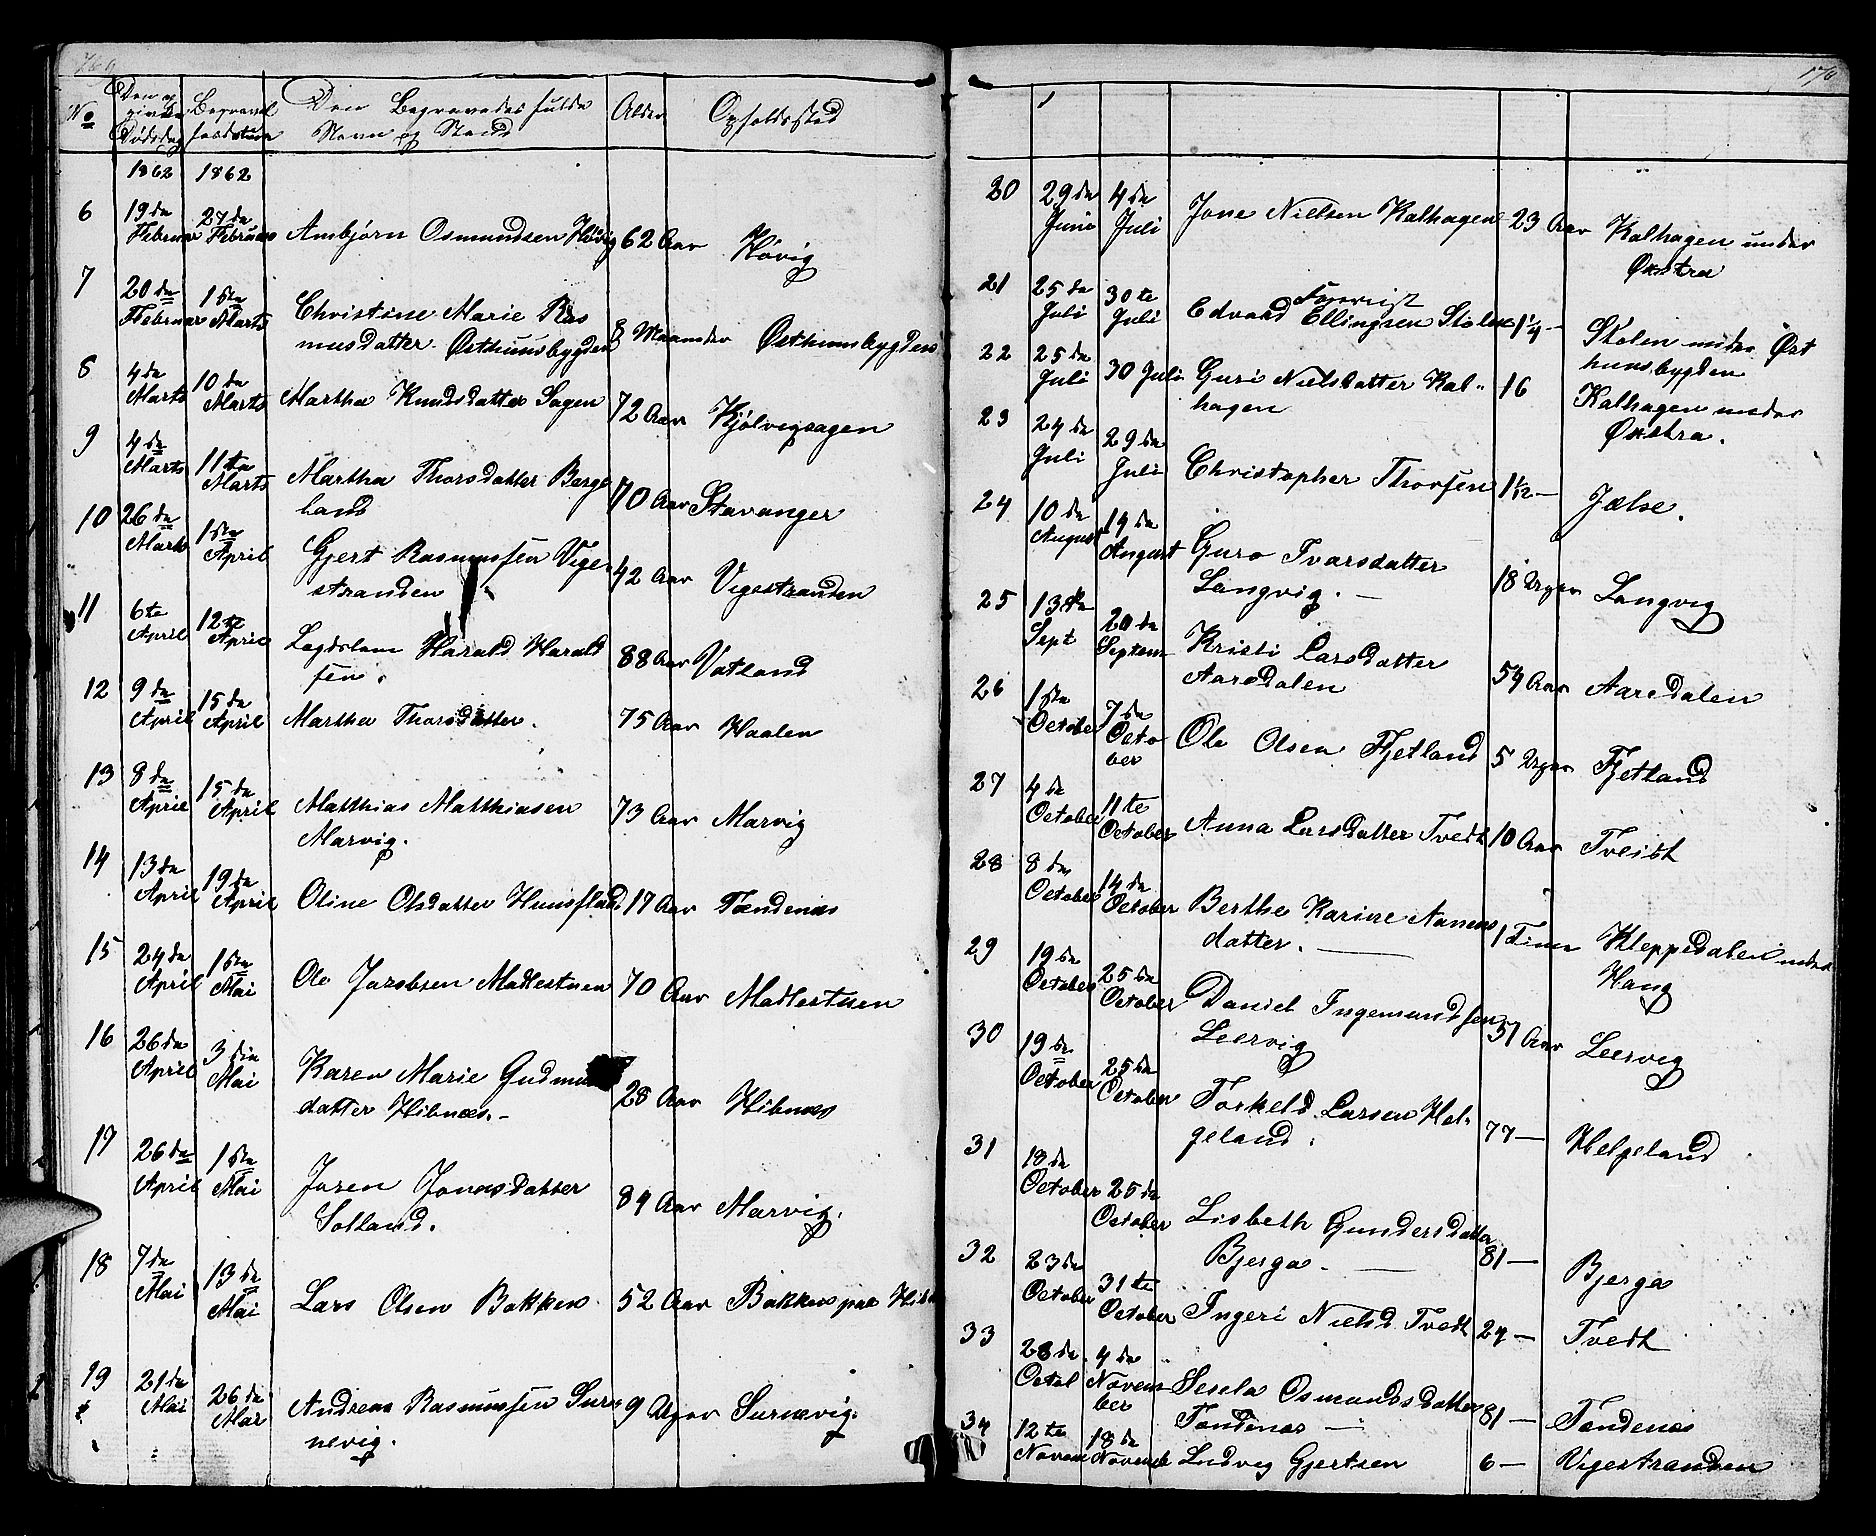 169
No
Den an
givne
Dødsdag
Begravel
sesdatum
Den Begravedes fulde
Navn og Stand
Alder
Opholdssted
1862
1862
6
19de
Februar
27de
Februar
Ambjørn Osmundsen Høvig
62 Aar
Høvig
7
20de
Februar
1ste
Marts
Christine Marie Ras
musdatter Østhunsbygden
8 Maaneder
Østhunsbygden
8
4de
Marts
10de
Marts
Martha Knudsdatter Sagen
72 Aar
Kjølvigsagen
9
4de
Marts
11te
Marts
Martha Thorsdatter Berge
land
70 Aar
Stavanger
10
26de
Marts
1ste
April
Gjert Rasmussen Vige-
stranden
42 Aar
Vigestranden
11
6te
April
12te
April
Lægdslem Harald Harald
sen.
88 Aar
Vatland
12
9de
April
15de
April
Martha Thorsdatter.
75 Aar
Haalen
13
8de
April
15de
April
Matthias Matthiasen
Marvig.
73 Aar
Marvig
14
13de
April
19de
April
Oline Olsdatter Hunsflad
17 Aar
Tændenæs
15
24de
April
1ste
Mai
Ole Jacobsen Madlestuen
70 Aar
Madlestuen
16
26de
April
3die
Mai
Karen Marie Gudmun
datter Hibnæs.-
28 Aar
Hibnæs
17
26de
April
1ste
Mai
Joren Jonasdatter
Solland.
84 Aar
Marvig.
18
7de
Mai
13de
Mai
Lars Olsen Bakken
52 Aar
Bakken paa Hibn
19
21de
Mai
26de
Mai
Andreas Rasmussen Sur
nevig.
9 Uger
Surnevig.
170
20
29de
Juni
4de
Juli
Jone Nielsen Kalhagen
23 Aar
Kalhagen under
Økstra
21
25de
Juli
30te
Juli
Edvard Ellingsen Stolen
1¼ -
Stolen under Øst
hunsbygden
22
25de
Juli
30 Juli
Guri Nielsdatter Kal-
hagen
16
Kalhagen under
Økstra.
23
24de
Juli
29de
Juli
Christopher Thorsen
1½ -
Jælse.
24
10de
August
14de
August
Guro Ivarsdatter
Langvig. -
18 Uger
Langvig
25
13de
Sept
20de
Septem
Kristi Larsdatter
Aarsdalen
54 Aar
Aarsdalen
26
1ste
October
7de
Octo
ber
Ole Olsen Fjetland
5 Uger
Fjetland
27
4de
October
11te
October
Anna Larsdatter Tvedt
10 Aar
Tveidt
28
8de
October
14de
October
Berthe Karine Nanens
datter. -
1 Time
Kleppedalen under
Haug
29
19de
October
25de
October
Daniel Ingemundsen
Leervig
57 Aar
Leervig
30
19de
October
25de
October
Torkeld Larsen Hel-
geland.
77 -
Helgeland
31
18de
October
25de
October
Lisbeth Gundersdatter
Bjerga. -
81 -
Bjerga
32
23de
October
31te
October
Ingeri Nielsd Tvedt
24 -
Tvedt
33
28de
Octob
4de
Novem
ber
Sesela Osmundsdatter
Tændenæs -
81 -
Tændenæs
34
12te
Novem
18de
Novemb
Ludvig Gjertsen
6 -
Vigestranden